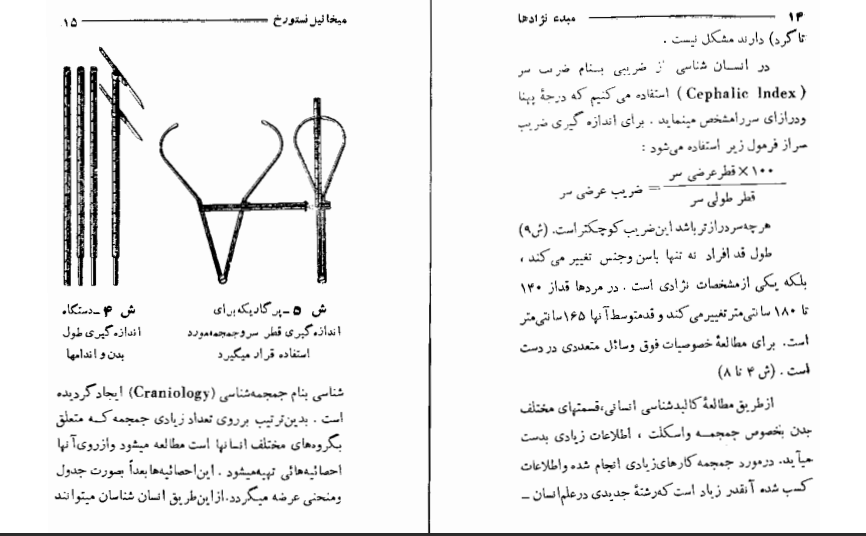 ۱۴ مبدء نژادها
تاگرد) دارند مشکل نیست .
در انسان شناسی از ضریبی بنام ضریب سر
( Cephalic Index ) استفاده می‌کنیم که درجهٔ پهنا
ودرازای سررامشخص مینماید . برای اندازه گیری ضریب
سر از فرمول زیر استفاده می‌شود :
۱۰۰ × قطرعرضی سر
قطر طولی سر
= ضریب عرضی سر
هرچه‌سردرازترباشد این‌ضریب‌کوچکتر است. (ش۹)
طول قد افراد نه تنها باسن وجنس تغییر می‌کند ،
بلکه یکی ازمشخصات نژادی است . در مردها قداز ۱۴۰
تا ۱۸۰ سانتی‌مترتغییرمی‌کند و قدمتوسط آنها ۱۶۵سانتی‌متر
است. برای مطالعهٔ خصوصیات فوق وسائل متعددی در دست
است . (ش ۴ تا ۸)
ازطریق مطالعهٔ کالبدشناسی انسانی،قسمتهای مختلف
بدن بخصوص جمجمـه واسکلت ، اطلاعات زیادی بدست
میآید. درمورد جمجمه کارهای‌زیادی انجام شده واطلاعات
کسب شده آنقدر زیاد است‌که‌رشتهٔ جدیدی درعلم‌انسان ــ
میخائیل نستورخ ۱۵
ش ۵ ـ پرگاریکه‌برای
اندازه‌گیری قطر سروجمجمه‌مورد
استفاده قرار میگیرد
ش ۴ ـ دستگاه
اندازه‌گیری طول
بدن و اندامها
شناسی بنام جمجمه‌شناسی (Craniology) ایجاد‌گردیده
است . بدین‌ترتیب برروی تعداد زیادی جمجمه کــه متعلق
بگروه‌های مختلف انسانها است مطالعه میشود وازروی‌آنها
احصائیه‌هائی تهیه‌میشود . این‌احصائیه‌هابعداً بصورت جدول
ومنحنی عرضه میگردد.ازاین‌طریق انسان شناسان میتوانند